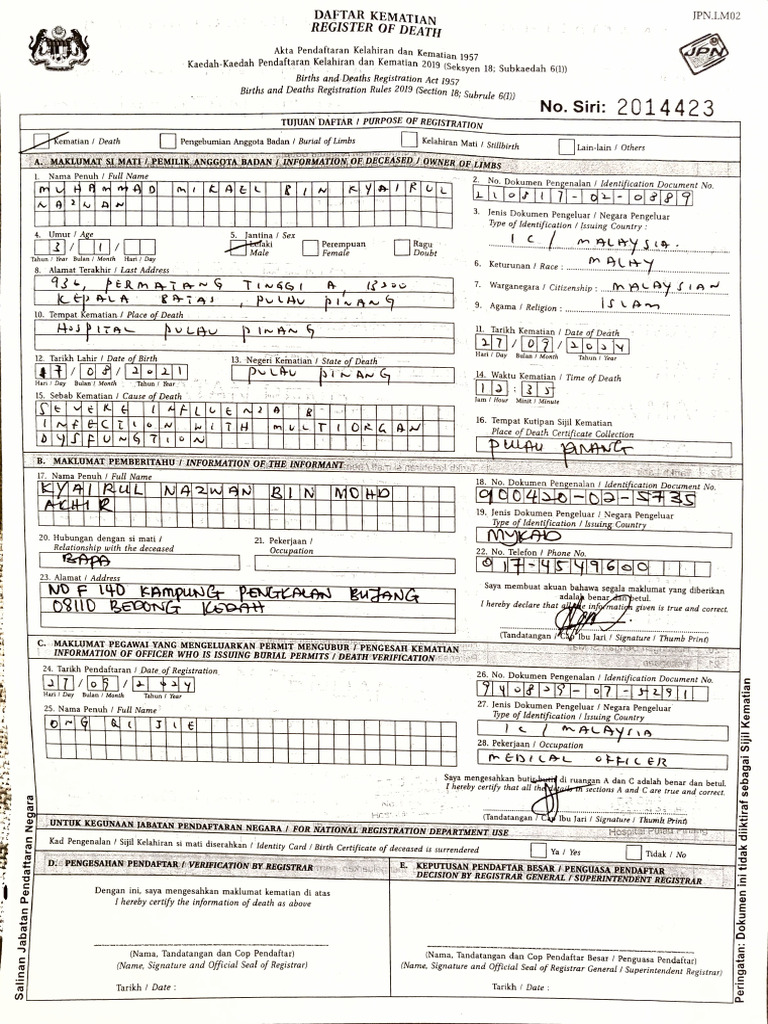 JPN.LM02
DAFTAR KEMATIAN
REGISTER OF DEATH
JPN
Akta Pendaftaran Kelahiran dan Kematian 1957
Kaedah-Kaedah Pendaftaran Kelahiran dan Kematian 2019 (Seksyen 18; Subkaedah 6(1))
Births and Deaths Registration Act 1957
Births and Deaths Registration Rules 2019 (Section 18; Subrule 6(1))
No. Siri: 2014423
TUJUAN DAFTAR / PURPOSE OF REGISTRATION
Kematian / Death Pengebumian Anggota Badan / Burial of Limbs Kelahiran Mati / Stillbirth Lain-lain / Others
A. MAKLUMAT SI MATI / PEMILIK ANGGOTA BADAN / INFORMATION OF DECEASED / OWNER OF LIMBS
1. Nama Penuh / Full Name
MUHAMMAD MIKAEL BIN KYAIRUL
NAZWAN
2. No. Dokumen Pengenalan / Identification Document No.
210817-02-0389
3. Jenis Dokumen Pengeluar / Negara Pengeluar
Type of Identification / Issuing Country :
IC / MALAYSIA.
4. Umur / Age
3 / 1 /
Tahun / Year Bulan / Month Hari / Day
5. Jantina / Sex
Lelaki
Male
Perempuan
Female
Ragu
Doubt
6. Keturunan / Race : MALAY
7. Warganegara / Citizenship : MALAYSIAN
8. Alamat Terakhir / Last Address
936, PERMATANG TINGGI A, 13200
KEPALA BATAS, PULAU PINANG
9. Agama / Religion : ISLAM
10. Tempat Kematian / Place of Death
HOSPITAL PULAU PINANG
11. Tarikh Kematian / Date of Death
27 / 09 / 2024
Hari / Day Bulan / Month Tahun / Year
12. Tarikh Lahir / Date of Birth
17 / 08 / 2021
Hari / Day Bulan / Month Tahun / Year
13. Negeri Kematian / State of Death
PULAU PINANG
14. Waktu Kematian / Time of Death
12:35
Jam / Hour Minit / Minute
15. Sebab Kematian / Cause of Death
SEVERE INFLUENZA B
INFECTION WITH MULTIORGAN
DYSFUNCTION
16. Tempat Kutipan Sijil Kematian
Place of Death Certificate Collection
PULAU PINANG
B. MAKLUMAT PEMBERITAHU / INFORMATION OF THE INFORMANT
17. Nama Penuh / Full Name
KYAIRUL NAZWAN BIN MOHD
AKHIR
18. No. Dokumen Pengenalan / Identification Document No.
900420-02-5735
19. Jenis Dokumen Pengeluar / Negara Pengeluar
Type of Identification / Issuing Country
MYKAD
20. Hubungan dengan si mati /
Relationship with the deceased
BAPA
21. Pekerjaan /
Occupation
22. No. Telefon / Phone No.
017-4549600
23. Alamat / Address
NO F 140 KAMPUNG PENGKALAN BUJANG
08110 BEDONG KEDAH
Saya membuat akuan bahawa segala maklumat yang diberikan
adalah benar dan betul.
I hereby declare that all the information given is true and correct.
(Tandatangan / Cap Ibu Jari / Signature / Thumb Print)
C. MAKLUMAT PEGAWAI YANG MENGELUARKAN PERMIT MENGUBUR / PENGESAH KEMATIAN
INFORMATION OF OFFICER WHO IS ISSUING BURIAL PERMITS / DEATH VERIFICATION
24. Tarikh Pendaftaran / Date of Registration
27 / 09 / 2024
Hari / Day Bulan / Month Tahun / Year
25. Nama Penuh / Full Name
ONG QI JIE
26. No. Dokumen Pengenalan / Identification Document No.
940829-07-5291
27. Jenis Dokumen Pengeluar / Negara Pengeluar
Type of Identification / Issuing Country
IC / MALAYSIA
28. Pekerjaan / Occupation
MEDICAL OFFICER
Saya mengesahkan butir-butir di ruangan A dan C adalah benar dan betul.
I hereby certify that all the details in sections A and C are true and correct.
(Tandatangan / Cap Ibu Jari / Signature / Thumb Print)
Hospital Pulau Pinang
UNTUK KEGUNAAN JABATAN PENDAFTARAN NEGARA / FOR NATIONAL REGISTRATION DEPARTMENT USE
Kad Pengenalan / Sijil Kelahiran si mati diserahkan / Identity Card / Birth Certificate of deceased is surrendered Ya / Yes Tidak / No
D. PENGESAHAN PENDAFTAR / VERIFICATION BY REGISTRAR
Dengan ini, saya mengesahkan maklumat kematian di atas
I hereby certify the information of death as above
(Nama, Tandatangan dan Cop Pendaftar)
(Name, Signature and Official Seal of Registrar)
Tarikh / Date :
E. KEPUTUSAN PENDAFTAR BESAR / PENGUASA PENDAFTAR
DECISION BY REGISTRAR GENERAL / SUPERINTENDENT REGISTRAR
(Nama, Tandatangan dan Cop Pendaftar Besar / Penguasa Pendaftar)
(Name, Signature and Official Seal of Registrar General / Superintendent Registrar)
Tarikh / Date :
Salinan Jabatan Pendaftaran Negara
Peringatan: Dokumen ini tidak diiktiraf sebagai Sijil Kematian